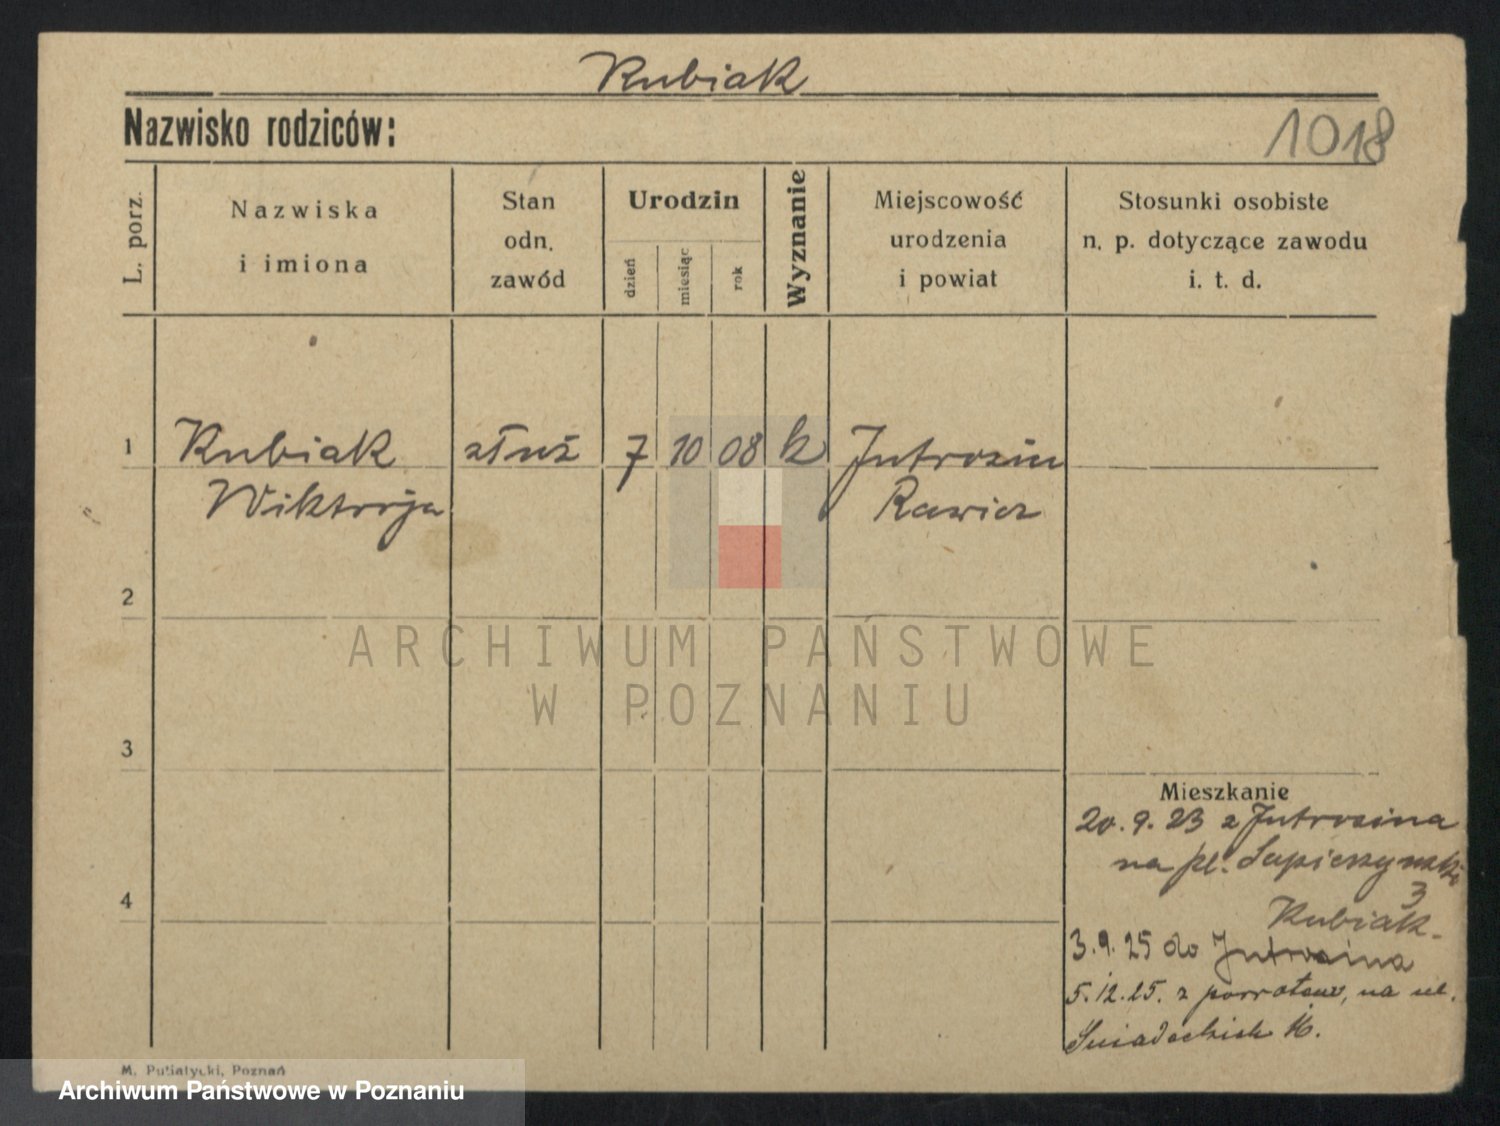 Kubiak
Nazwisko rodziców:
1018
L. porz.
Nazwiska
i imiona
Stan
odn.
zawód
Urodzin
dzień
miesiąc
rok
Wyznanie
Miejscowość
urodzenia
i powiat
Stosunki osobiste
n. p. dotyczące zawodu
i. t. d.
1 Kubiak służ 7 10 08 k Jutrosin
Wiktorja Rawicz
2
ARCHIWUM PAŃSTWOWE
W POZNANIU
3
Mieszkanie
20.9.23 z Jutrosina
na pl. Sapieżyński
3
4
Kubiak.
3.9.25 do Jutrosina
5.12.25. z powrotem, na ul.
Śniadeckich
M. Putiatycki, Poznań
Archiwum Państwowe w Poznaniu